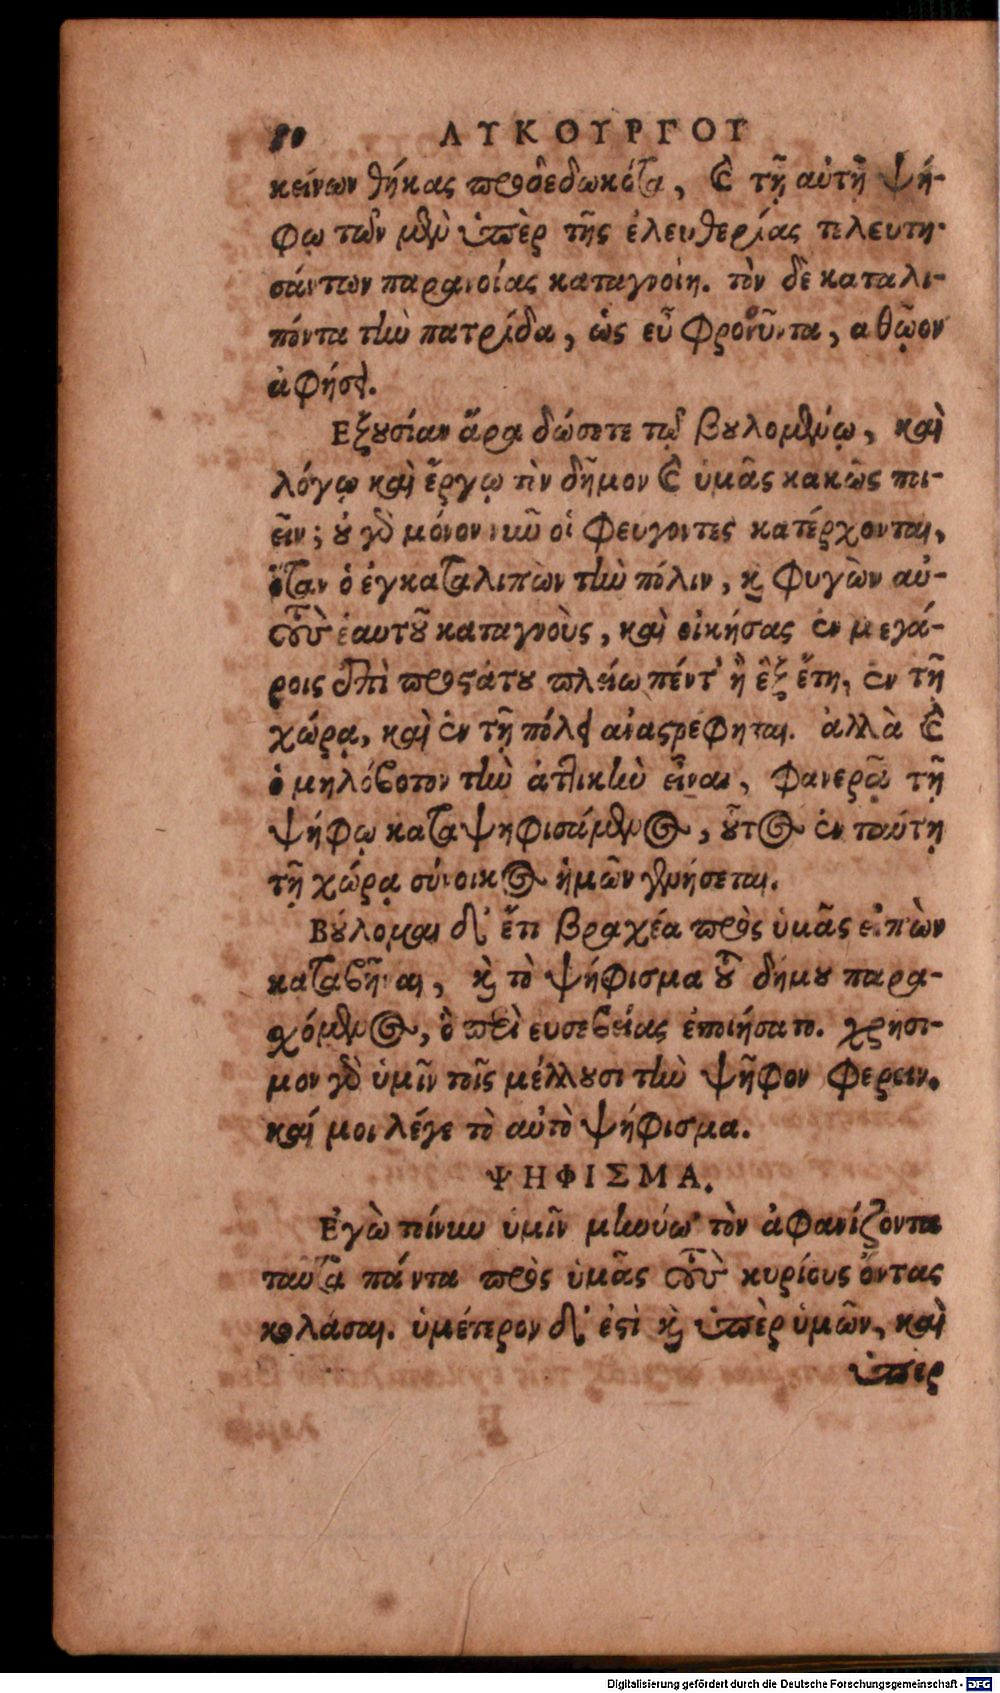 80 ΛΥΚΟΥΡΓΟΥ
κείνων θήκας προδεδωκότα, καὶ τῇ αὐτῇ ψή-
φῳ τῶν μὲν ὑπὲρ τῆς ἐλευθερίας τελευτη-
σάντων παρανοίας καταγνοίη. τὸν δὲ καταλι-
πόντα τὴν πατρίδα, ὡς εὖ φρονοῦντα, ἀθῷον
ἀφήσει.
Εξουσίαν ἄρα δώσετε τῷ βουλομένῳ, καὶ
λόγῳ καὶ ἔργῳ τὸν δῆμον καὶ ὑμᾶς κακῶς ποι-
εῖν; οὐ γὰρ μόνον νῦν οἱ φεύγοντες κατέρχονται,
ὅταν ὁ ἐγκαταλιπὼν τὴν πόλιν, καὶ φυγὼν αὐ-
τὸς ἑαυτοῦ καταγνοὺς, καὶ οἰκήσας ἐν μεγά-
ροις ἐπὶ προστάτου πλείω πέντ' ἢ ἓξ ἔτη, ἐν τῇ
χώρᾳ, καὶ ἐν τῇ πόλει ἀναστρέφηται. ἀλλὰ καὶ
ὁ μηλόβοτον τὴν ἀττικὴν εἶναι, φανερᾷ τῇ
ψήφῳ καταψηφισάμενος, οὗτος ἐν ταύτῃ
τῇ χώρᾳ σύνοικος ἡμῶν γενήσεται.
Βούλομαι δ' ἔτι βραχέα πρὸς ὑμᾶς εἰπὼν
καταβῆναι, καὶ τὸ ψήφισμα τοῦ δήμου παρα-
σχόμενος, ὃ περὶ εὐσεβείας ἐποιήσατο. χρήσι-
μον γὰρ ὑμῖν τοῖς μέλλουσι τὴν ψῆφον φέρειν.
καί μοι λέγε τὸ αὐτὸ ψήφισμα.
ΨΗΦΙΣΜΑ.
Ἐγὼ τοίνυν ὑμῖν μηνύω τὸν ἀφανίζοντα
ταῦτα πάντα πρὸς ὑμᾶς τοὺς κυρίους ὄντας
κολάσαι. ὑμέτερον δ' ἐστὶ καὶ ὑπὲρ ὑμῶν, καὶ
ὑπὲρ
Digitalisierung gefördert durch die Deutsche Forschungsgemeinschaft - DFG